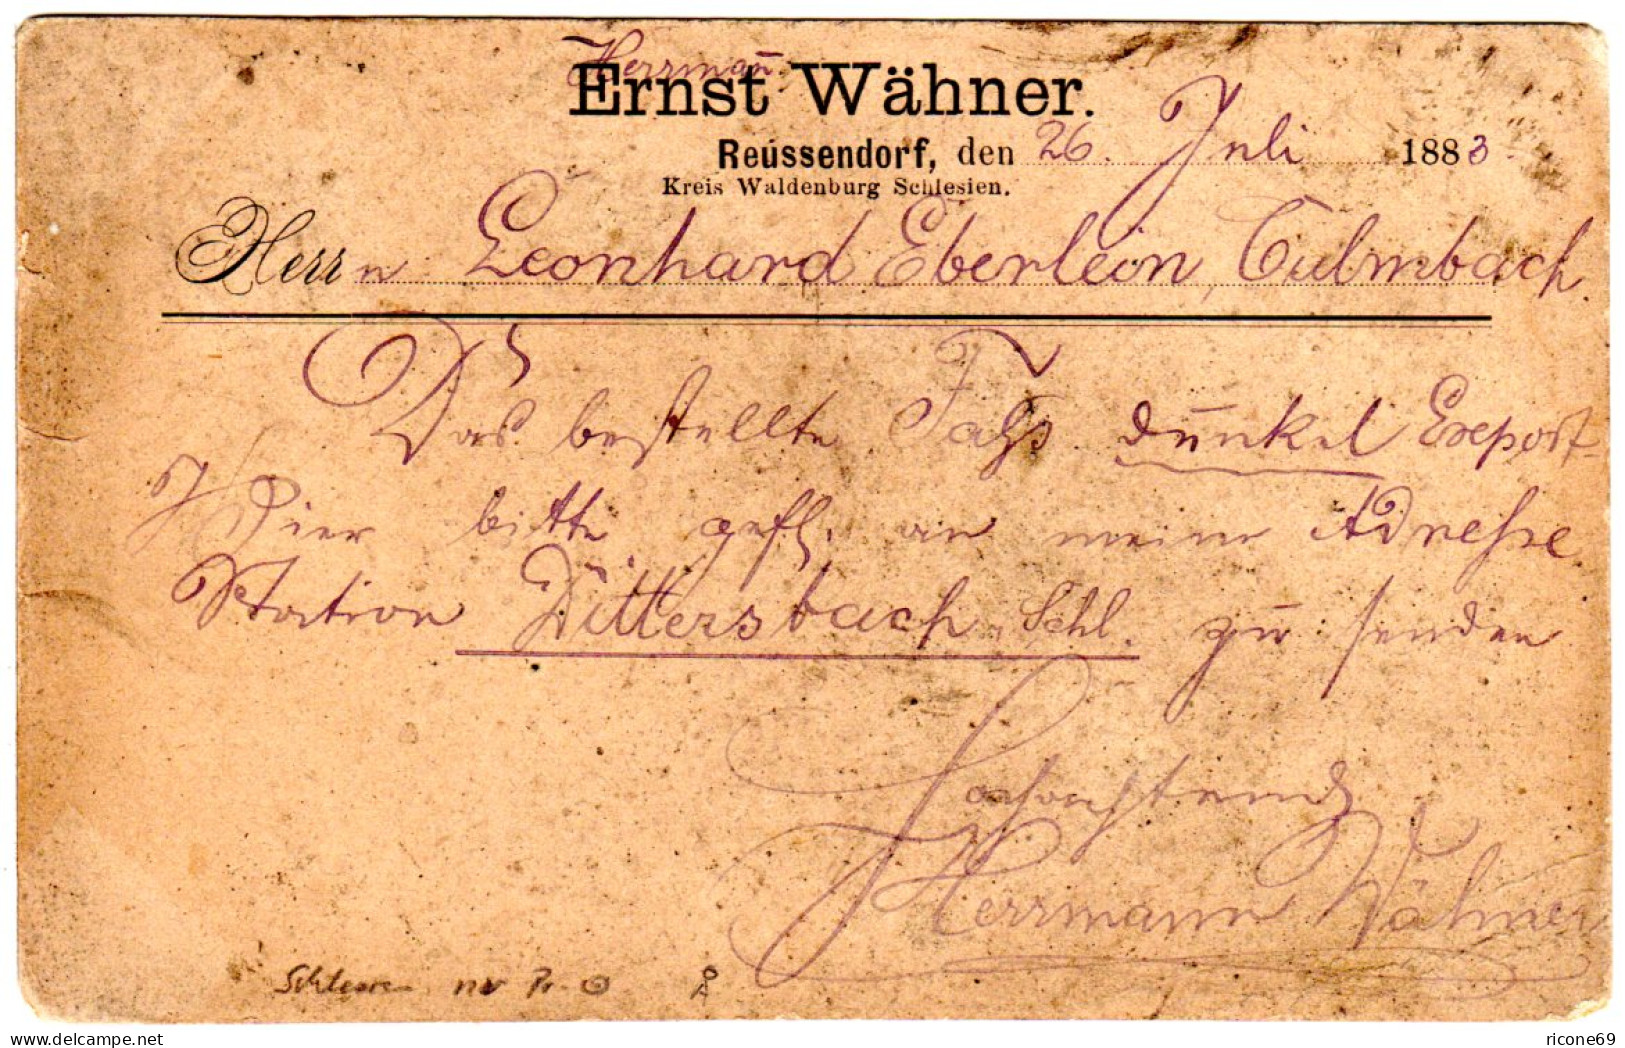 Herrmañ
Ernst Wähner.
Reússendorf, den 26. Juli 1883.
Kreis Waldenburg Schlesien.
Herrn Leonhard Eberlein, Culmbach.
Das bestellte Faß dunkel Export-
Bier bitte gefl. an meine Adresse
Station Dittersbach Schl. zu senden
Hochachtend
Herrmann Wähner
Schlesien
delcampe.net
ricone69